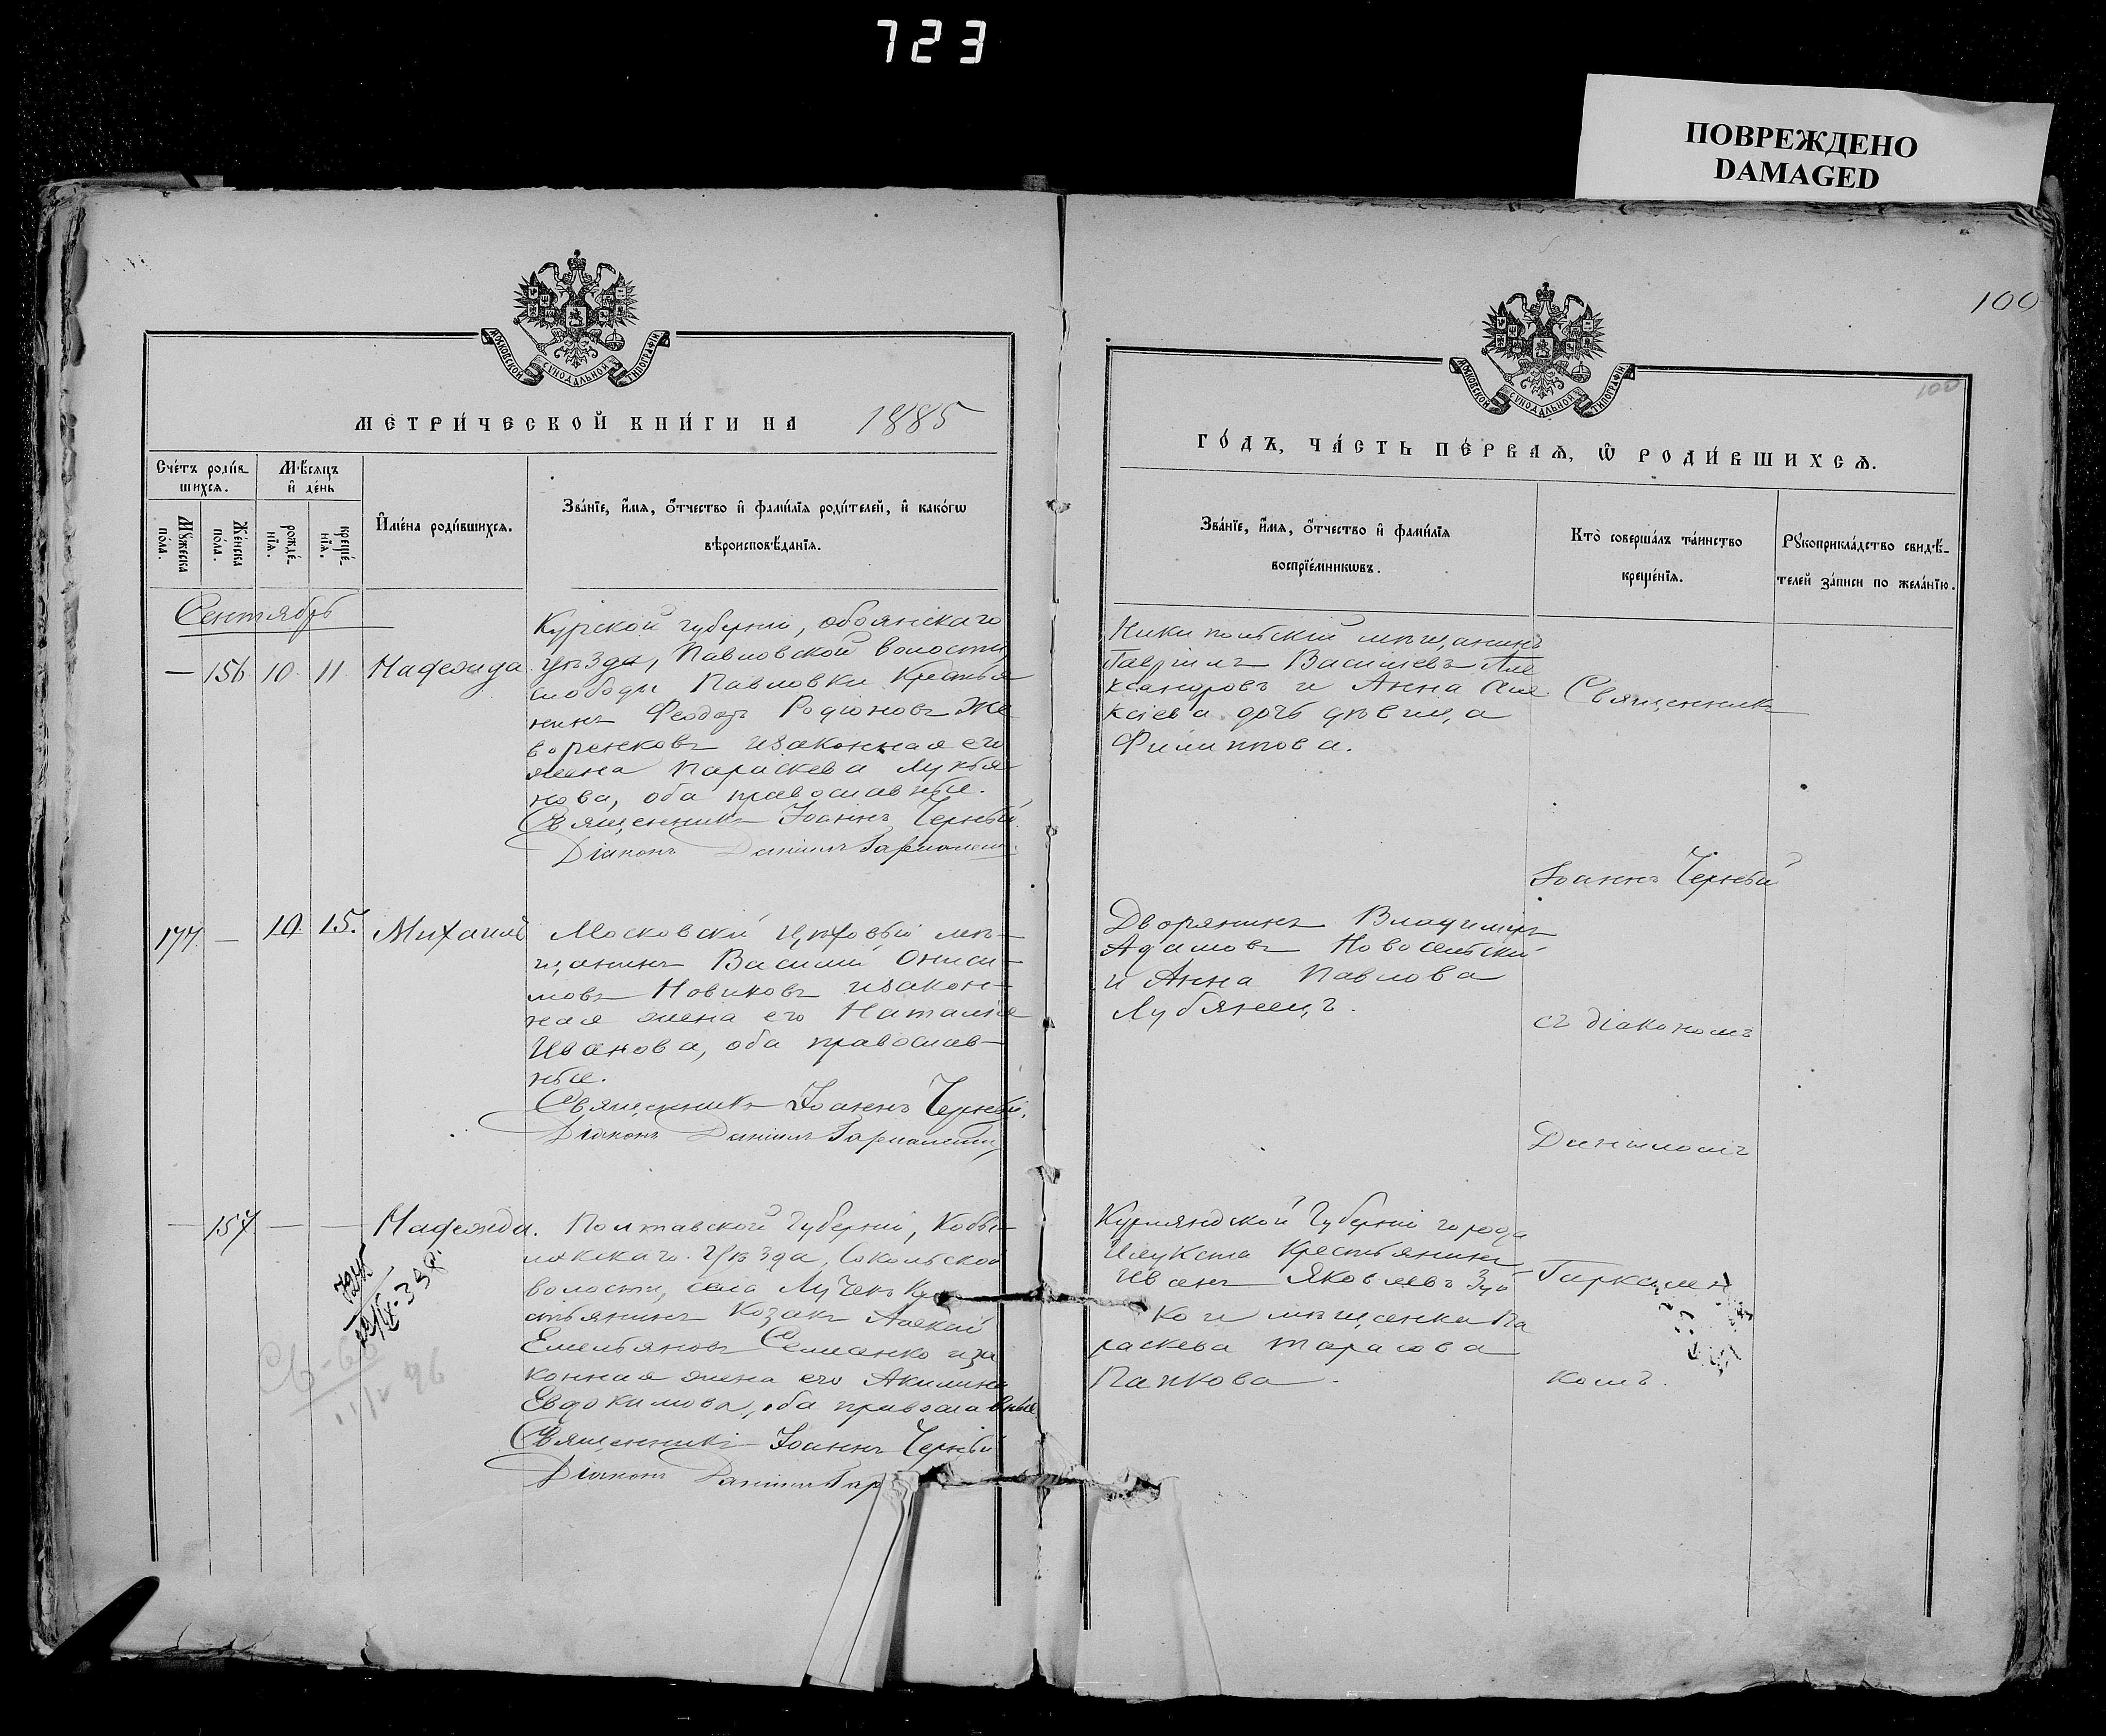 723
ПОВРЕЖДЕНО
DAMAGED
100
100
МОСКОВСКОЙ СѴНОДАЛЬНОЙ ТИПОГРАФІИ
МОСКОВСКОЙ СѴНОДАЛЬНОЙ ТИПОГРАФІИ
МЕТРИ́ЧЕСКОЙ КНИ́ГИ НА 1885
ГО́ДЪ, ЧА́СТЬ ПЕ́РВАѦ, Ѡ҆ РОДИ́ВШИХСѦ.
Сче́тъ роди́в-
шихсѧ.
Мꙋ́жеска по́ла.
Же́нска по́ла.
Мѣ́сѧцъ
и҆ де́нь
рожде́-
нїѧ.
креще́-
нїѧ.
И҆мена̀ роди́вшихсѧ.
Зва́нїе, и҆́мѧ, ѻ҆́тчество и҆ фами́лїѧ роди́телей, и҆ како́гѡ
вѣроисповѣ́данїѧ.
Зва́нїе, и҆́мѧ, ѻ҆́тчество и҆ фами́лїѧ
воспрїе́мникѡвъ.
Кто̀ соверша́лъ та́инство
креще́нїѧ.
Рꙋкоприкла́дство свидѣ́-
телей за́писи по жела́нїю.
Сентябрь
— 156 10. 11. Надежда
Курской губерніи, обоянскаго
уѣзда, Павловской волости,
слободы Павловки Крестья
нинъ Феодоръ Родіоновъ Же
воронковъ изаконная его
жена Параскева Лукья
нова, оба православные.
Священникъ Іоаннъ Черный
Діаконъ Даніилъ
Никипольскій мѣщанинъ
Гавріилъ Васильевъ Але
ксандровъ и Анна Але
ксіева дочь дѣвица
Филиппова.
Священникъ
Іоаннъ Черный
съ діакономъ
Даніиломъ
177. — 10. 15. Михаилъ
Московскій цѣховый мѣ-
щанинъ Василій Ониси-
мовъ Новиковъ изакон-
ная жена его Наталія
Иванова, оба православ-
ные.
Священникъ Іоаннъ Черный.
Діаконъ Даніилъ
Дворянинъ Владиміръ
Адамовъ Новосельскій
и Анна Павлова
Лубянецъ.
— 157. — — Надежда.
Полтавской Губерніи, Кобы-
лякскаго Уѣзда, Сокольской
волости, села Лучекъ Кре
стьянинъ Козакъ Алексій
Емельяновъ Семенко иза
конная жена его Акилина
Евдокимова, оба православные
Священникъ Іоаннъ Черный
Діаконъ Даніилъ Гар
Курляндской Губерніи города
Илукста Крестьянинъ
Иванъ Яковлевъ Зуб
ко и мѣщанка Па
раскева Тарасова
Папкова.
комъ.